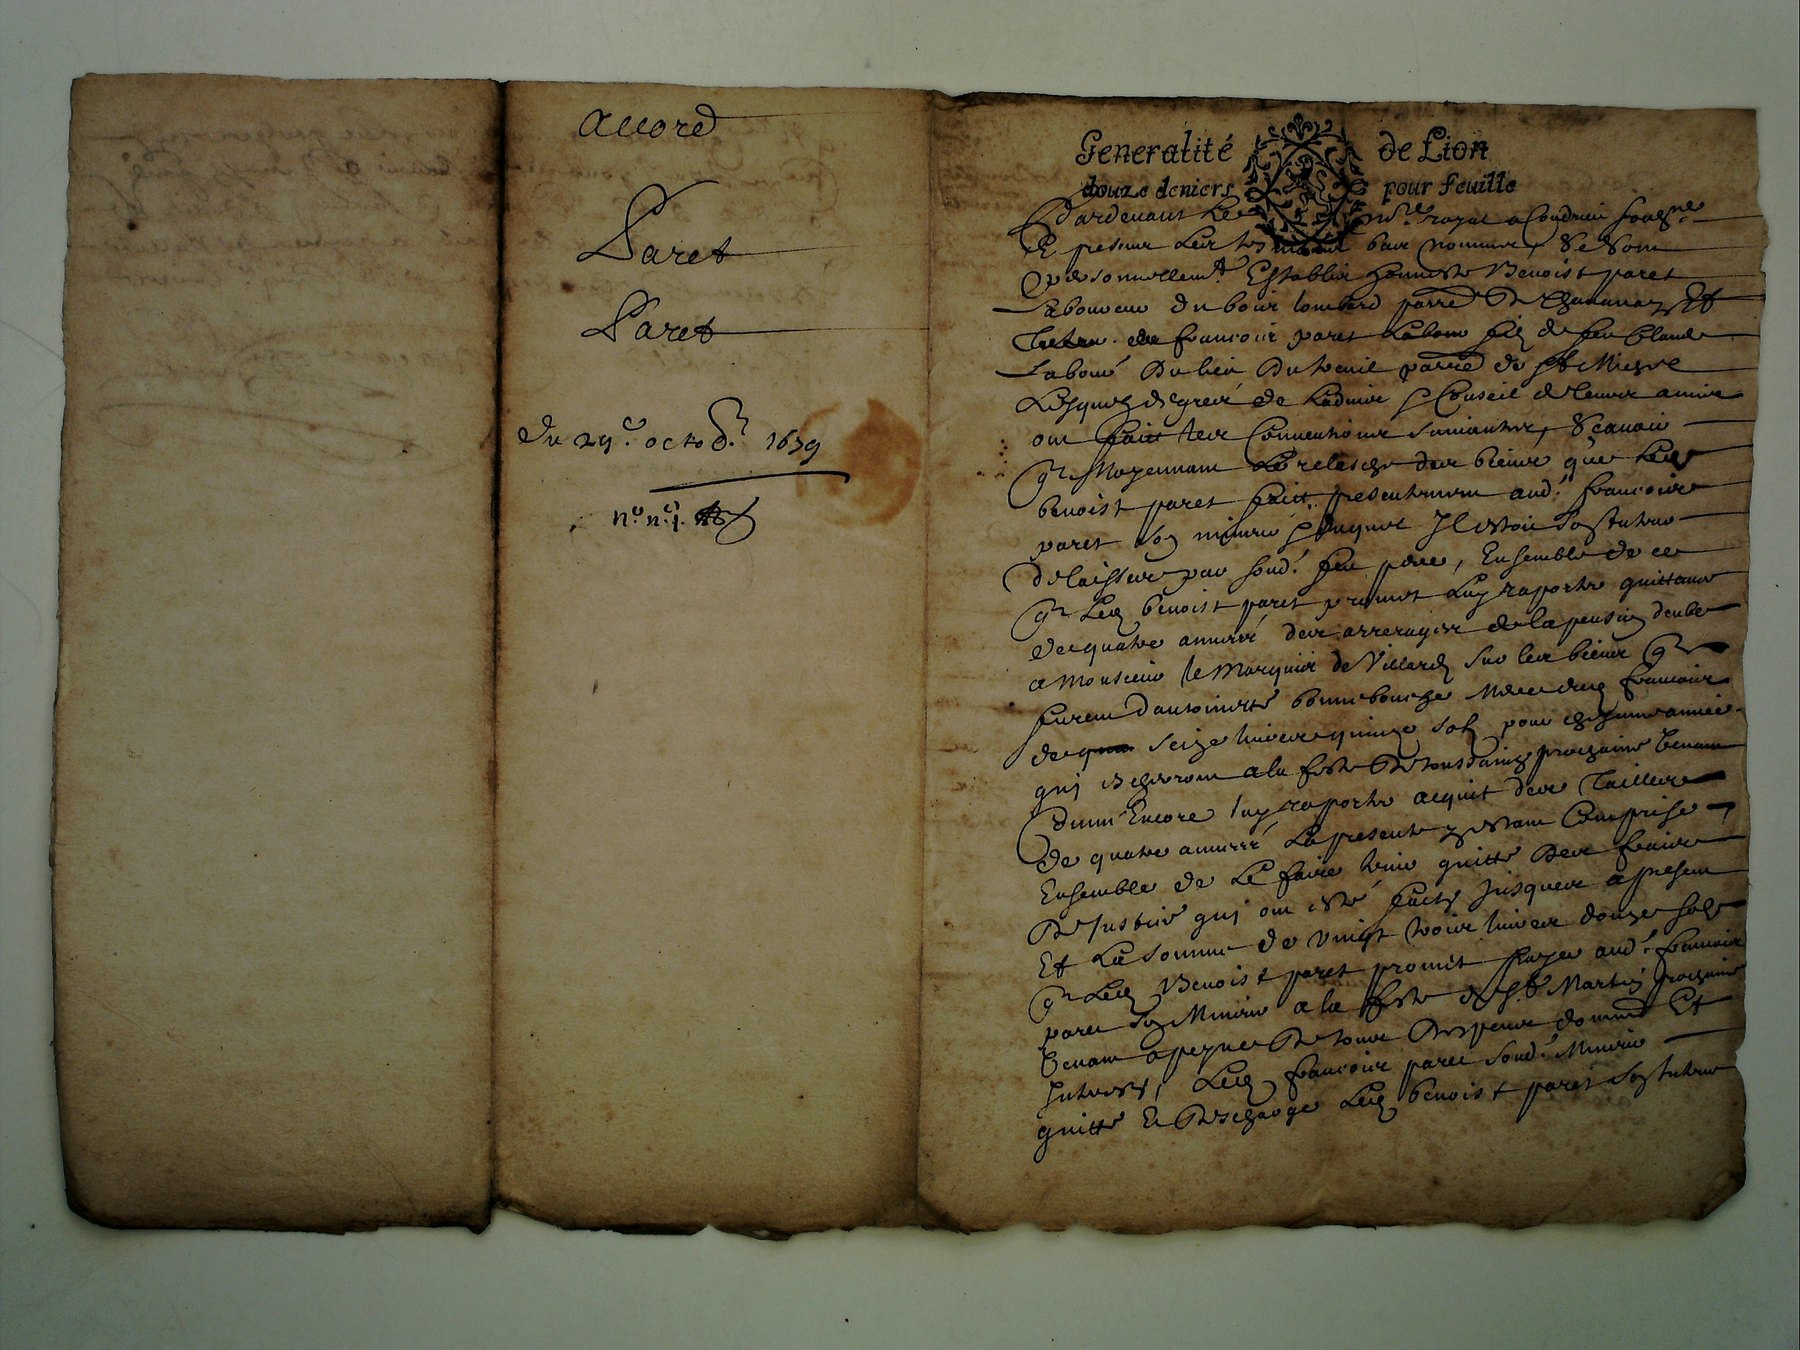 accord
Paret
Paret
du 29e. octob.r 1679
n.o n.
Generalité de Lion
douze deniers pour feuille
Pardevant Le no.re royal a Condrieu soubz.ne
Et presens Les tesmoins bas nommes, se sont
personnellem.t Establis honneste Benoist paret
Laboureur du bour lombard parr.e de Et
de francois paret filz de feu Claude
Labour Du lieu Du parr.e de St
Lesquelz de gré de Ladvis & Conseil de leurs amis
ont fait les Conventions suivantes, Scavoir
q. Moyennant Le relesche des biens que Led
benoist paret fait presentement aud. francois
paret son Il estoit
delaisses par sond. feu pere, Ensemble de ce
q. Led benoist paret promet Luy raporter quittance
de quatre années des arrerages de la pension deube
a Monsieur le Marquis de Villars sur les biens q.
furent d'antoinette bonnebouche Mere dud francois
de seize livres quinze solz pour chacune année
qui escherront a la feste De toussainctz prochaine Venant
Comme Encore luy raporter acquit des Tailles
de quatre années La presente y estant Comprise
Ensemble de Le faire tenir quitte Des fraicts
De Justice qui ont esté faicts Jusques a present
Et La somme de vingt trois livres douze solz
q. Led Benoist paret promet payer aud. francois
paret son a la feste de St Martin prochaine
Venant a peyne De tous Despens dommages Et
Interests, Led francois paret sond.
quitte Et Descharge Led benoist paret